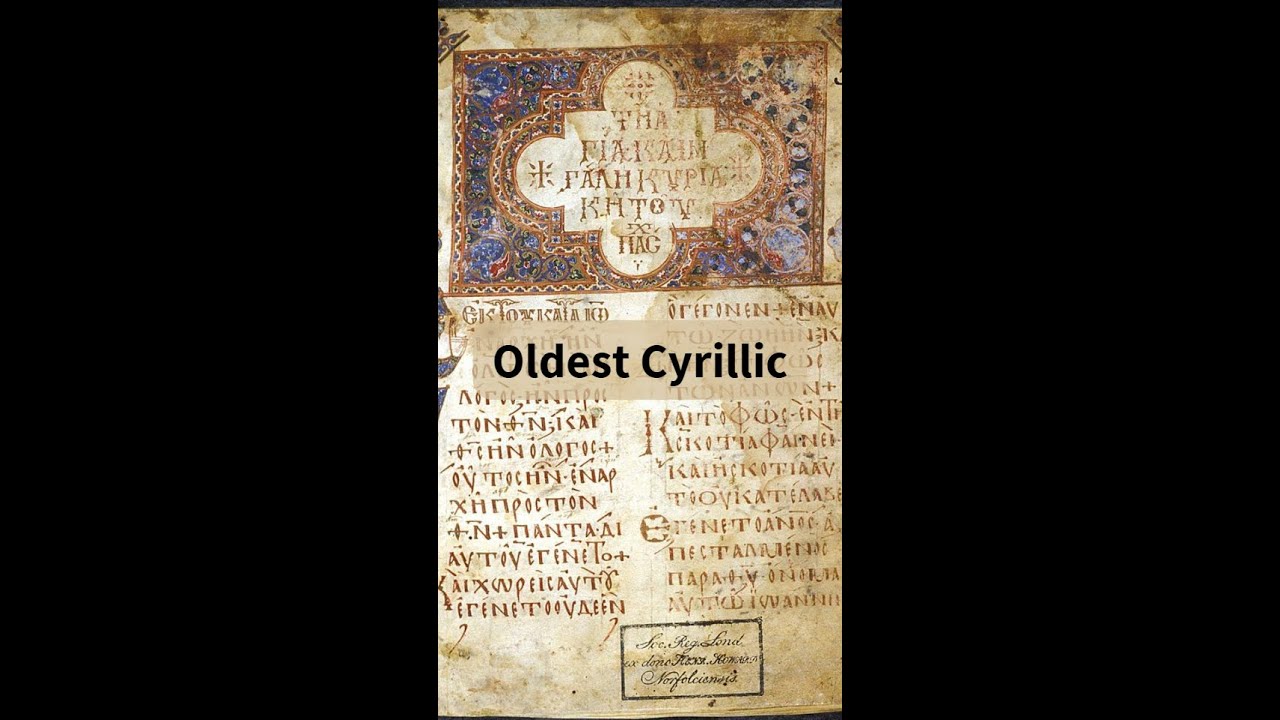 ΤΗ Α
ΓΙΑ ΚΑΙ Μ
ΓΑΛΗ ΚΥΡΙΑ
ΚΗ ΤΟΥ
ΠΑϹ
ΕΚ ΤΟΥ ΚΑΤΑ ΙΩ
ΛΟΓΟϹ ΗΝ ΠΡΟϹ
ΤΟΝ ΘΝ ΚΑΙ
ΘϹ ΗΝ Ο ΛΟΓΟϹ +
ΟΥΤΟϹ ΗΝ ΕΝ ΑΡ
ΧΗ ΠΡΟϹ ΤΟΝ
ΘΝ + ΠΑΝΤΑ ΔΙ
ΑΥΤΟΥ ΕΓΕΝΕΤΟ +
ΚΑΙ ΧΩΡΕΙϹ ΑΥΤΟΥ
ΕΓΕΝΕΤΟ ΟΥΔΕ ΕΝ
Ο ΓΕΓΟΝΕΝ + ΕΝ ΑΥ
ΤΩ ΖΩΗ ΗΝ Κ
ΤΩΝ ΑΝΩΝ +
ΚΑΙ ΤΟ ΦΩϹ ΕΝ ΤΗ
ϹΚΟΤΙΑ ΦΑΙΝΕΙ
ΚΑΙ Η ϹΚΟΤΙΑ ΑΥ
ΤΟ ΟΥ ΚΑΤΕΛΑΒΕ
ΕΓΕΝΕΤΟ ΑΝΟϹ Α
ΠΕϹΤΑΛΜΕΝΟϹ
ΠΑΡΑ ΘΥ ΟΝΟΜΑ
ΑΥΤΩ ΙΩΑΝΝΗ
Oldest Cyrillic
Soc. Reg. Lond
ex dono HENR. HOWARD
Norfolciensis.